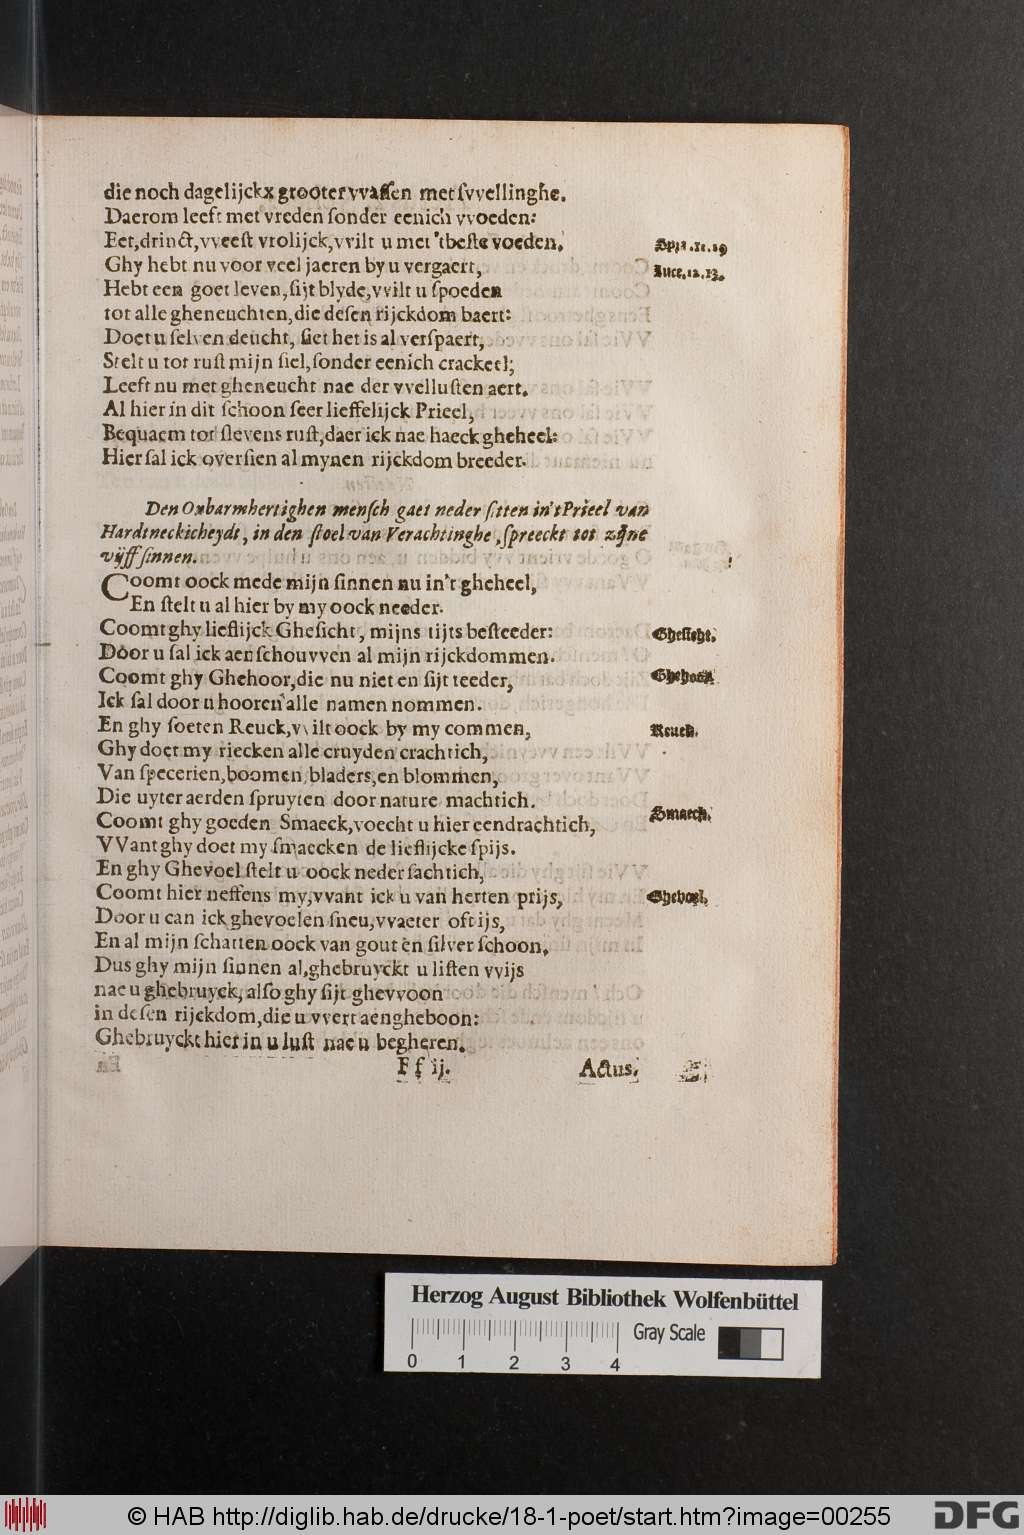 die noch dagelijckx grooter vvaſſen met ſvvellinghe.
Daerom leeft met vreden ſonder eenich vvoeden:
Eet, drinct, vveeſt vrolijck, vvilt u met 'tbeſte voeden.
Ghy hebt nu voor veel jaeren by u vergaert,
Hebt een goet leven, ſijt blyde, vvilt u ſpoeden
tot alle gheneuchten, die deſen rijckdom baert:
Doet u ſelven deucht, ſiet het is al verſpaert,
Stelt u tot ruſt mijn ſiel, ſonder eenich crackeel;
Leeft nu met gheneucht nae der vvelluſten aert.
Al hier in dit ſchoon ſeer lieffelijck Prieel,
Bequaem tot ſlevens ruſt, daer ick nae haeck gheheel:
Hier ſal ick overſien al mynen rijckdom breeder.
Luce. 12. 13.
Den Onbarmhertighen menſch gaet neder ſitten in't Prieel van
Hardtneckicheydt, in den ſtoel van Verachtinghe, ſpreeckt tot zijne
vijff ſinnen.
Coomt oock mede mijn ſinnen nu in't gheheel,
En ſtelt u al hier by my oock needer.
Coomt ghy lieflijck Gheſicht, mijns tijts beſteeder:
Gheſicht.
Door u ſal ick aenſchouvven al mijn rijckdommen.
Coomt ghy Ghehoor, die nu niet en ſijt teeder,
Ghehoor.
Ick ſal door u hooren alle namen nommen.
En ghy ſoeten Reuck, vvilt oock by my commen,
Reuck.
Ghy doet my riecken alle cruyden crachtich,
Van ſpecerien, boomen, bladers, en blommen,
Die uyter aerden ſpruyten door nature machtich.
Coomt ghy goeden Smaeck, voecht u hier eendrachtich,
Smaeck.
VVant ghy doet my ſmaecken de lieflijcke ſpijs.
En ghy Ghevoel ſtelt u oock neder ſachtich,
Coomt hier neffens my, vvant ick u van herten prijs,
Ghevoel.
Door u can ick ghevoelen ſneu, vvaeter oft ijs,
En al mijn ſchatten oock van gout en ſilver ſchoon.
Dus ghy mijn ſinnen al, ghebruyckt u liſten vvijs
nae u ghebruyck, alſo ghy ſijt ghevvoon
in deſen rijckdom, die u vvert aengheboon:
Ghebruyckt hier in u luſt nae u begheren.
Ff ij.
Actus.
Herzog August Bibliothek Wolfenbüttel
Gray Scale
0 1 2 3 4
© HAB http://diglib.hab.de/drucke/18-1-poet/start.htm?image=00255
DFG